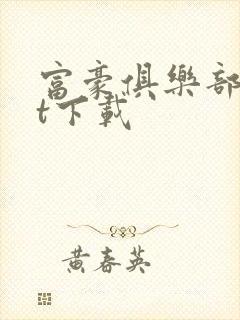 富豪俱樂部
t下載
黃春英